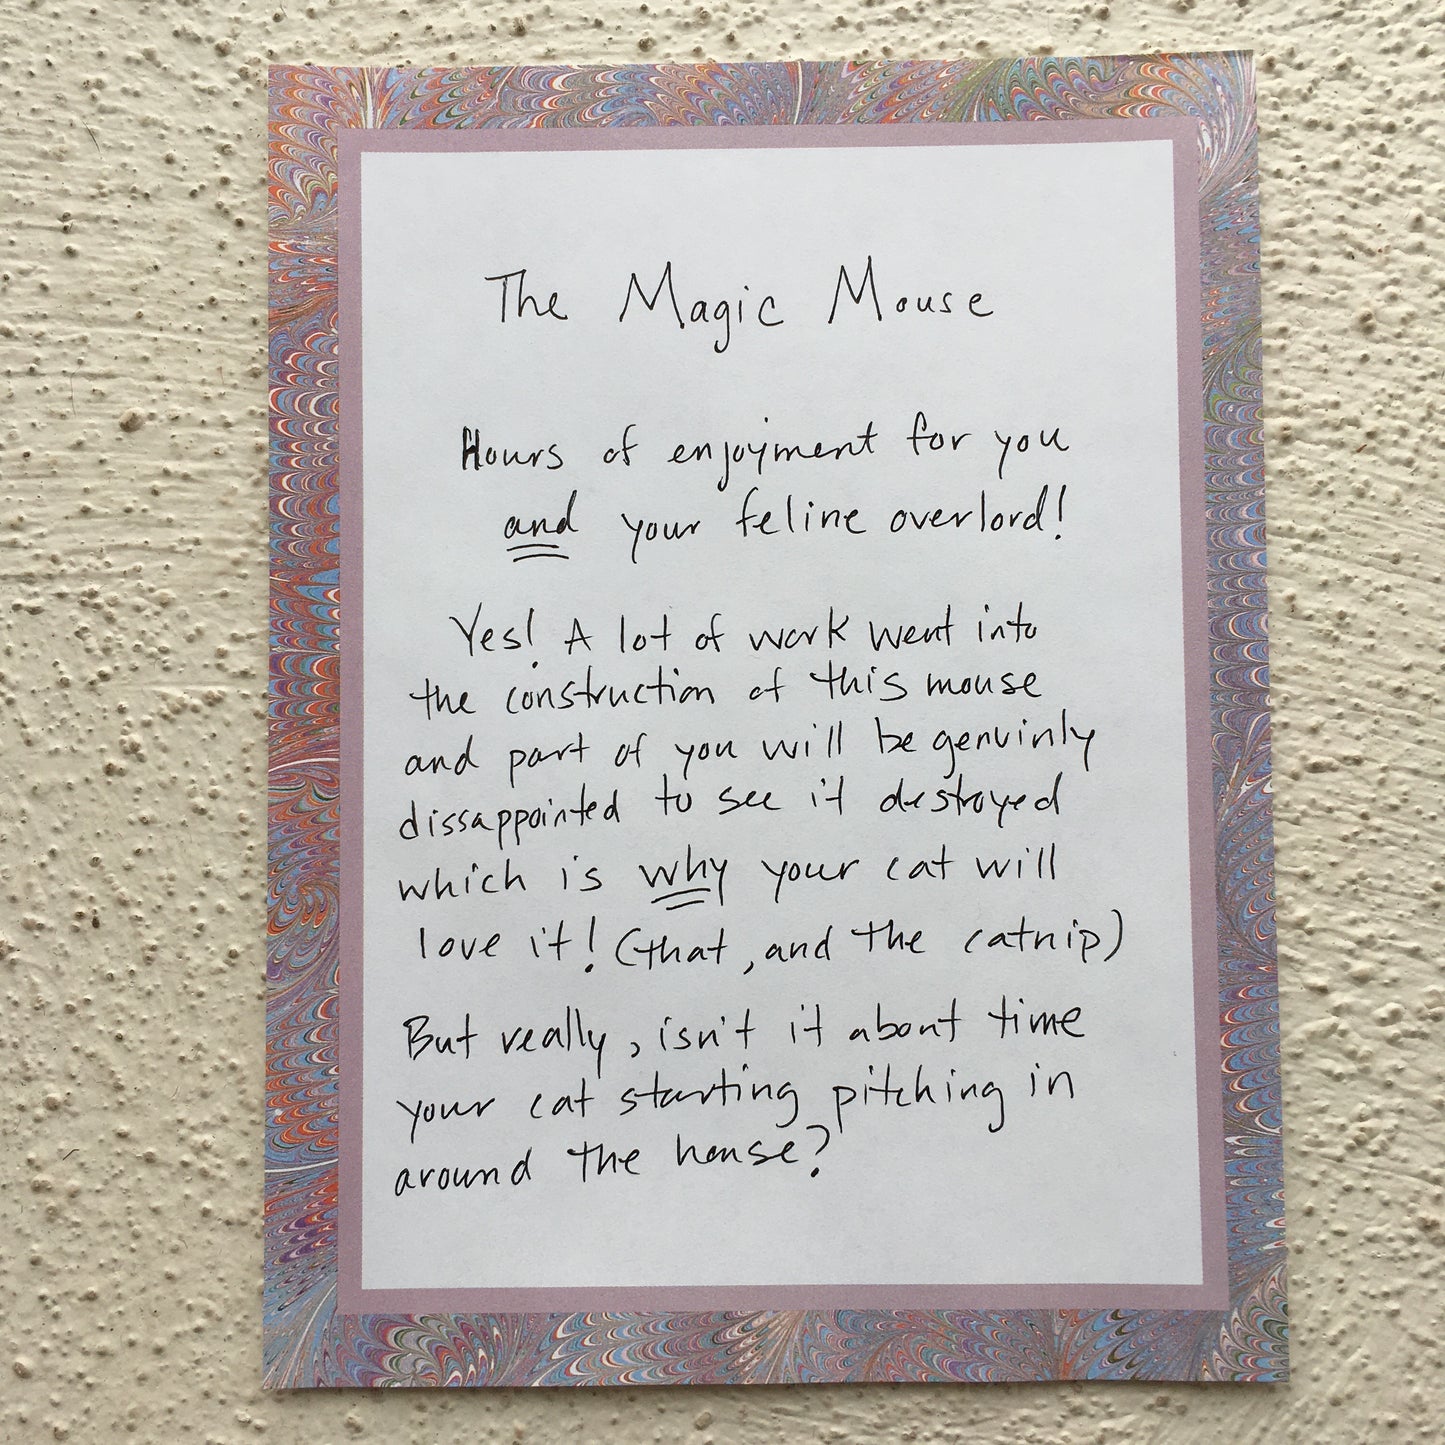 The Magic Mouse
Hours of enjoyment for you
and your feline overlord!
Yes! A lot of work went into
the construction of this mouse
and part of you will be genuinly
dissappointed to see it destroyed
which is why your cat will
love it! (that, and the catnip)
But really, isn't it about time
your cat starting pitching in
around the house?